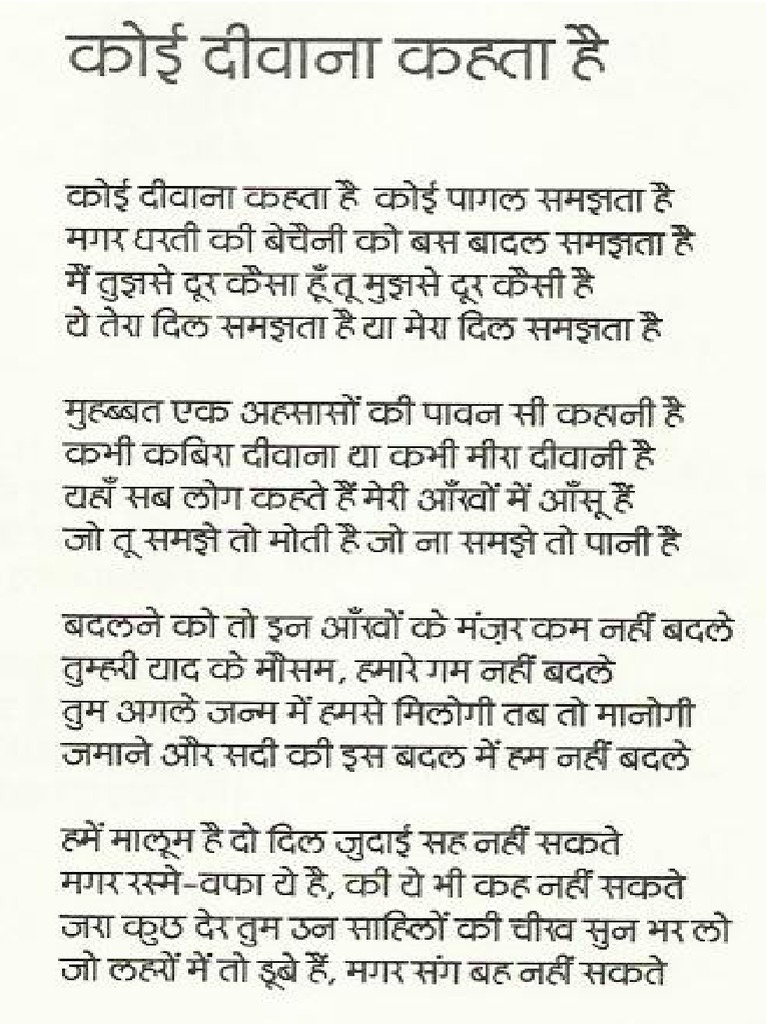 कोई दीवाना कहता है
कोई दीवाना कहता है कोई पागल समझता है
मगर धरती की बेचैनी को बस बादल समझता है
मैं तुझसे दूर कैसा हूँ तू मुझसे दूर कैसी है
ये तेरा दिल समझता है या मेरा दिल समझता है
मुहब्बत एक अहसासों की पावन सी कहानी है
कभी कबिरा दीवाना था कभी मीरा दीवानी है
यहाँ सब लोग कहते हैं मेरी आँखों में आँसू हैं
जो तू समझे तो मोती है जो ना समझे तो पानी है
बदलने को तो इन आँखों के मंज़र कम नहीं बदले
तुम्हरी याद के मौसम, हमारे गम नहीं बदले
तुम अगले जन्म में हमसे मिलोगी तब तो मानोगी
जमाने और सदी की इस बदल में हम नहीं बदले
हमें मालूम है दो दिल जुदाई सह नहीं सकते
मगर रस्मे-वफा ये है, की ये भी कह नहीं सकते
जरा कुछ देर तुम उन साहिलों की चीख सुन भर लो
जो लहरों में तो डूबे हैं, मगर संग बह नहीं सकते